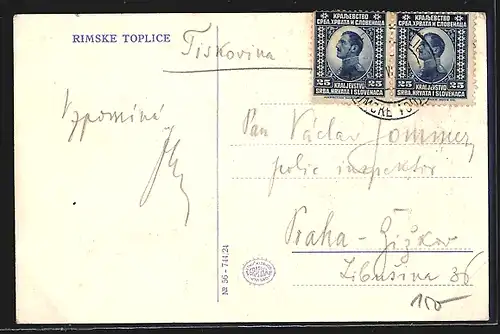 RIMSKE TOPLICE
Tiskovina
КРАЉЕВСТВО
СРБА, ХРВАТА И СЛОВЕНАЦА
25 25
KRALJEVSTVO
SRBA, HRVATA I SLOVENACA
КРАЉЕВСТВО
СРБА, ХРВАТА И СЛОВЕНАЦА
25 25
KRALJEVSTVO
SRBA, HRVATA I SLOVENACA
Vzpomíná
Pan Václav Sommer
polic inspektor
Praha - Žižkov
Libušina 36
№ 56 - 744/24